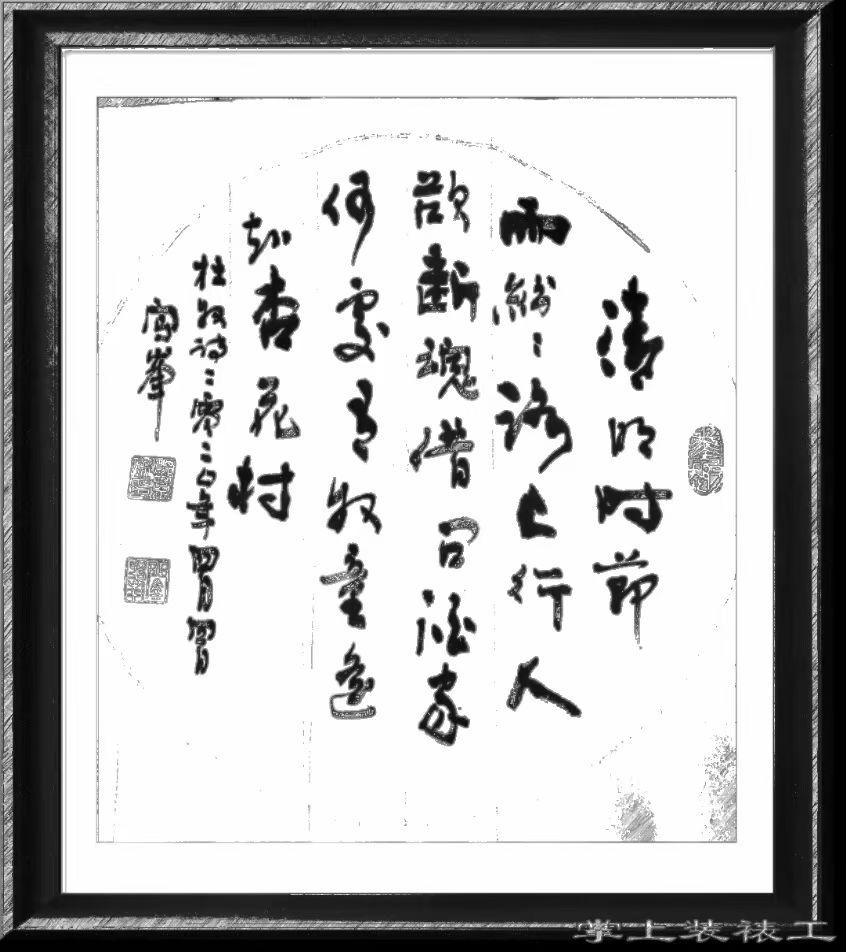 清明时節
雨紛〻路上行人
欲斷魂借问酒家
何處有牧童遥
指杏花村
杜牧诗二零二〇年四月四日
峯
掌上装裱工